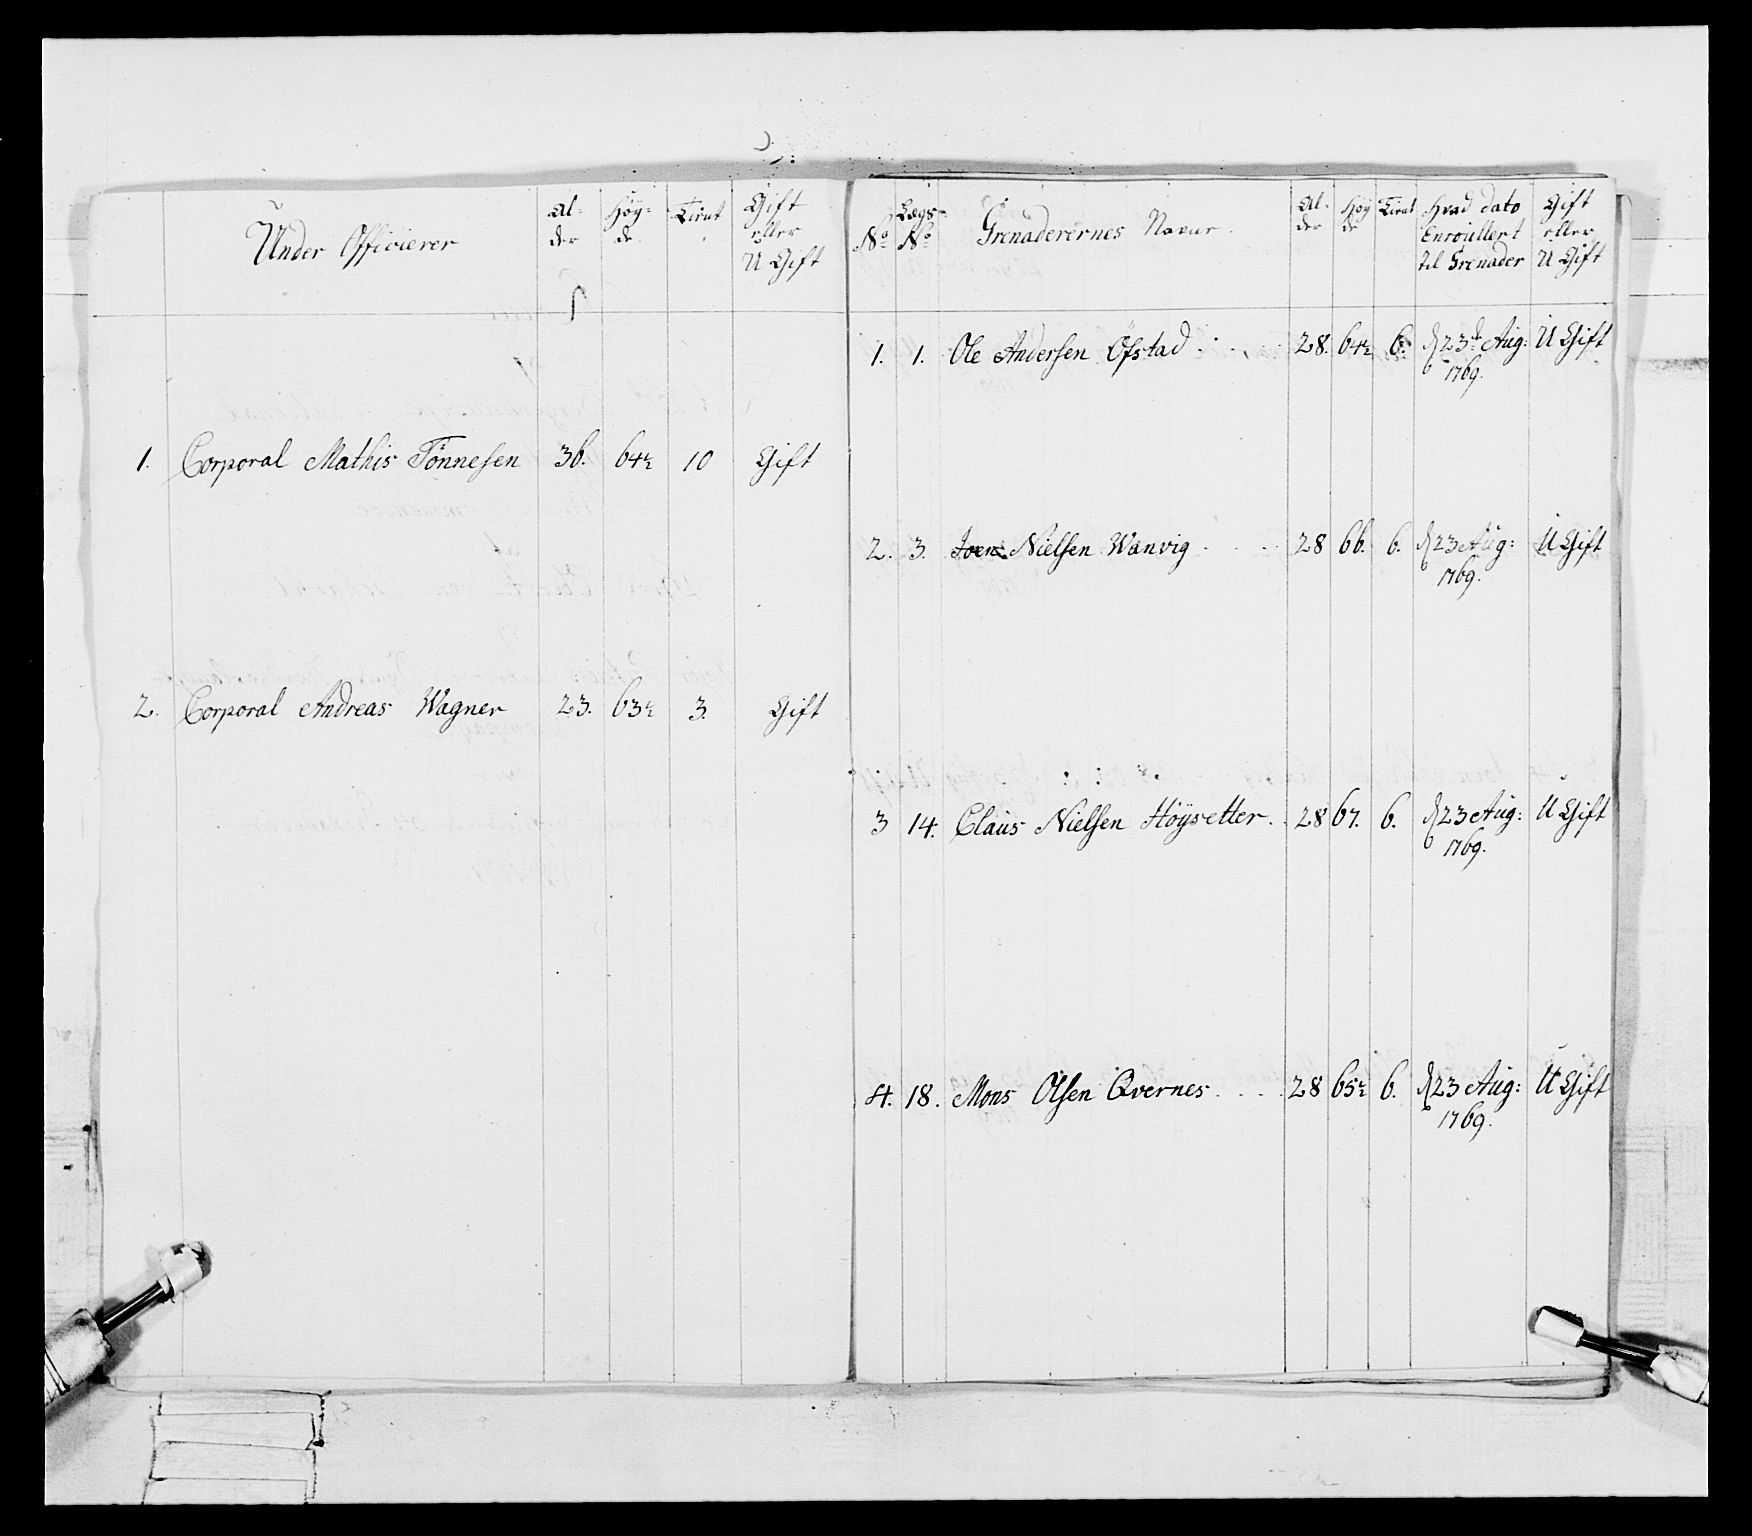 Under Officierer
Al-
der
Høy-
de
Tient
Gift
eller
U Gift
1. Corporal Mathis Tönnesen 36. 64½ 10 Gift
2. Corporal Andreas Wagner 23. 63½ 3. Gift
No
Lægs-
No
Grenaderernes Navne.
Al-
der
Høy
de
Tient
Hvad dato
Enroullert
til Grenader
Gift
eller
U Gift
1. 1. Ole Andersen Öfstad 28. 64½ 6. d 23de Aug: U Gift
1769.
2. 3. Joen Nielsen Wanvig 28 66. 6. d 23 Aug: U Gift
1769.
3 14. Claus Nielsen Höÿsetter 28 67. 6. d 23 Aug: U Gift
1769.
4. 18. Mons Olsen Qvernes 28 65½ 6. d 23 Aug: U Gift
1769.